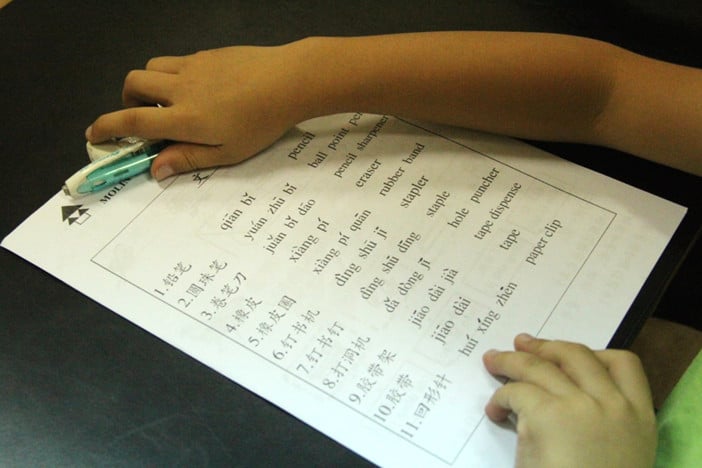 MOLI
1.铅笔 qiān bǐ pencil
2.圆珠笔 yuán zhū bǐ ball point pe
3.卷笔刀 juǎn bǐ dāo pencil sharpener
4.橡皮 xiàng pí eraser
5.橡皮圈 xiàng pí quān rubber band
6.钉书机 dìng shū jī stapler
7.钉书钉 dìng shū dīng staple
8.打洞机 dǎ dòng jī hole puncher
9.胶带架 jiāo dài jià tape dispense
10.胶带 jiāo dài tape
11.回形针 huí xíng zhēn paper clip